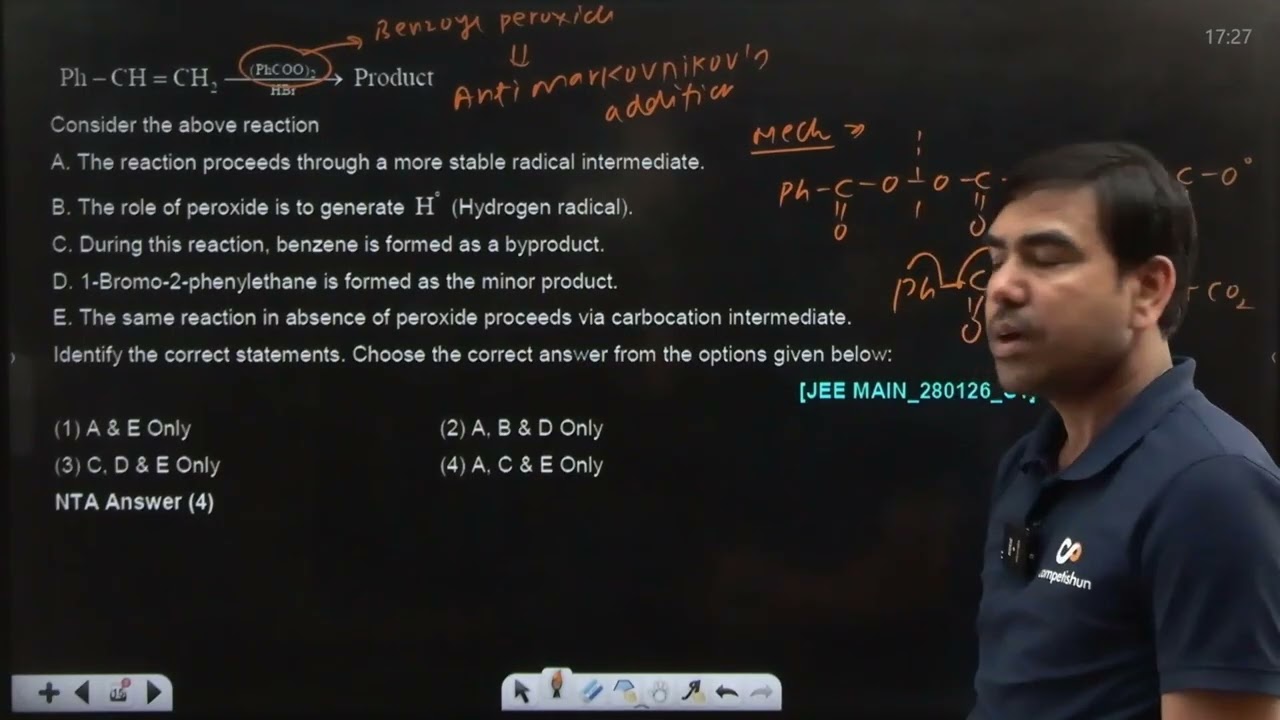 17:27
Benzoyl peroxide
⇓
Anti markovnikov's
addition
Ph – CH = CH₂ (PhCOO)₂ HBr → Product
Consider the above reaction
A. The reaction proceeds through a more stable radical intermediate.
B. The role of peroxide is to generate H° (Hydrogen radical).
C. During this reaction, benzene is formed as a byproduct.
D. 1-Bromo-2-phenylethane is formed as the minor product.
E. The same reaction in absence of peroxide proceeds via carbocation intermediate.
Identify the correct statements. Choose the correct answer from the options given below:
[JEE MAIN_280126_
(1) A & E Only
(2) A, B & D Only
(3) C, D & E Only
(4) A, C & E Only
NTA Answer (4)
Mech ⇒
Ph – C – O – O – C – C – O°
O O
Ph – C – CO₂
O
competishun